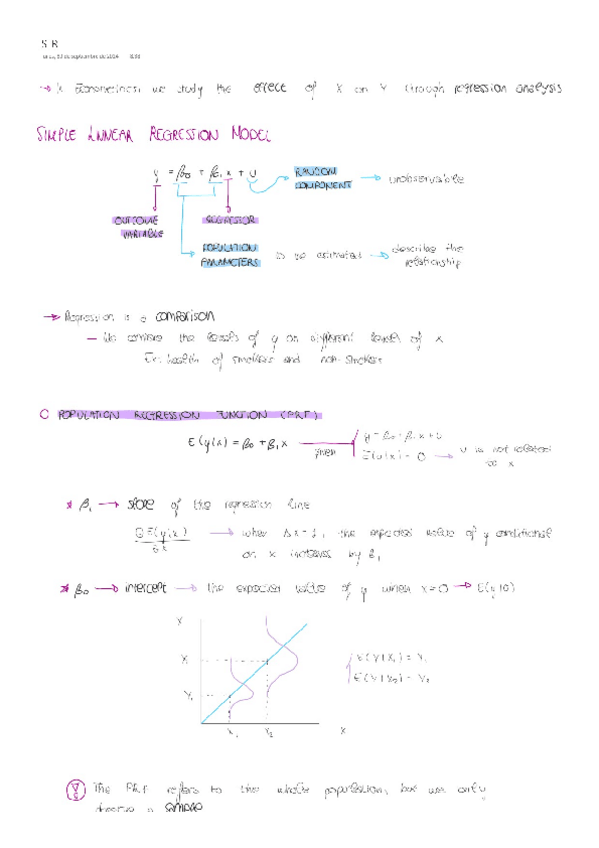 S R
→ In Econometrics we study the effect of X on Y through regression analysis
SIMPLE LINNEAR REGRESSION MODEL
y = β0 + β1 x + u
RANDOM COMPONENT → unobservable
OUTCOME VARIABLE
REGRESSOR
POPULATION PARAMETERS to be estimated → describe the relationship
→ Regression is a comparison
— We compare the levels of y on different levels of x
Ex: health of smokers and non-smokers
POPULATION REGRESSION FUNCTION (PRF)
E(y|x) = β0 + β1 x
when
y = β0 + β1 x + u
E(u|x) = 0 → u is not related to x
* β1 → slope of the regression line
δE(y|x)
δx
→ when Δx = 1, the expected value of y conditional
on x increases by β1
* β0 → intercept → the expected value of y when x=0 → E(y|0)
Y
Y1
X1
X2
X
E(Y|X1) = Y1
E(Y|X2) = Y2
The PRF refers to the whole population, but we only
observe a sample